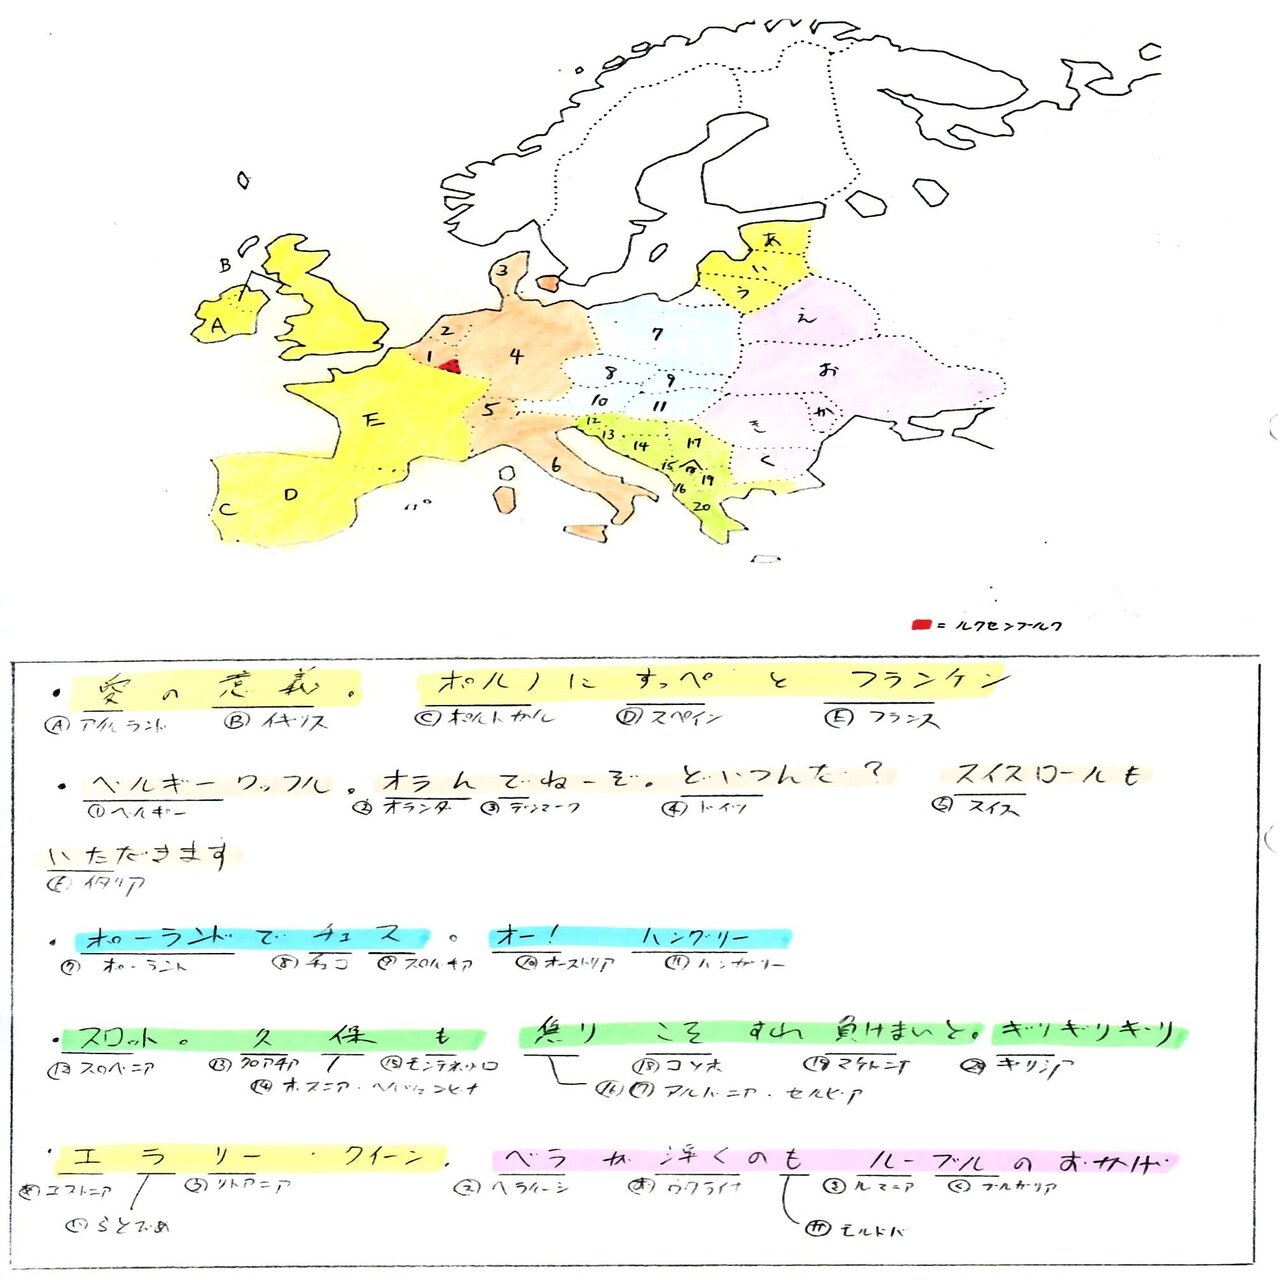 あ
B
い
3
う
え
A
2
7
1
4
お
8
9
10
11
5
E
12
か
き
13
14
17
く
6
15
18
19
16
D
C
20
= ルクセンブルク
・愛の意義。 ポルノに すっぺ と フランケン
Ⓐ アイルランド Ⓑ イギリス Ⓒ ポルトガル Ⓓ スペイン Ⓔ フランス
・ベルギーワッフル。オランでねーぞ。どいつんだ? スイスロールも
① ベルギー ② オランダ ③ デンマーク ④ ドイツ ⑤ スイス
いただきます
⑥ イタリア
・ポーランドで チェス。 オー! ハングリー
⑦ ポーランド ⑧ チェコ ⑨ スロバキア ⑩ オーストリア ⑪ ハンガリー
・スロット。 久保も 焦り こそ すれ 負けまいと。ギリギリギリ
⑫ スロベニア ⑬ クロアチア ⑮ モンテネグロ ⑱ コソボ ⑲ マケドニア ⑳ ギリシア
⑭ ボスニア・ヘルツェゴビナ ⑯⑰ アルバニア・セルビア
・エラリー・クイーン. ベラが浮くのも ルーブルのおかげ
あ エストニア う リトアニア え ベラルーシ お ウクライナ き ルーマニア く ブルガリア
い らとびあ か モルドバ